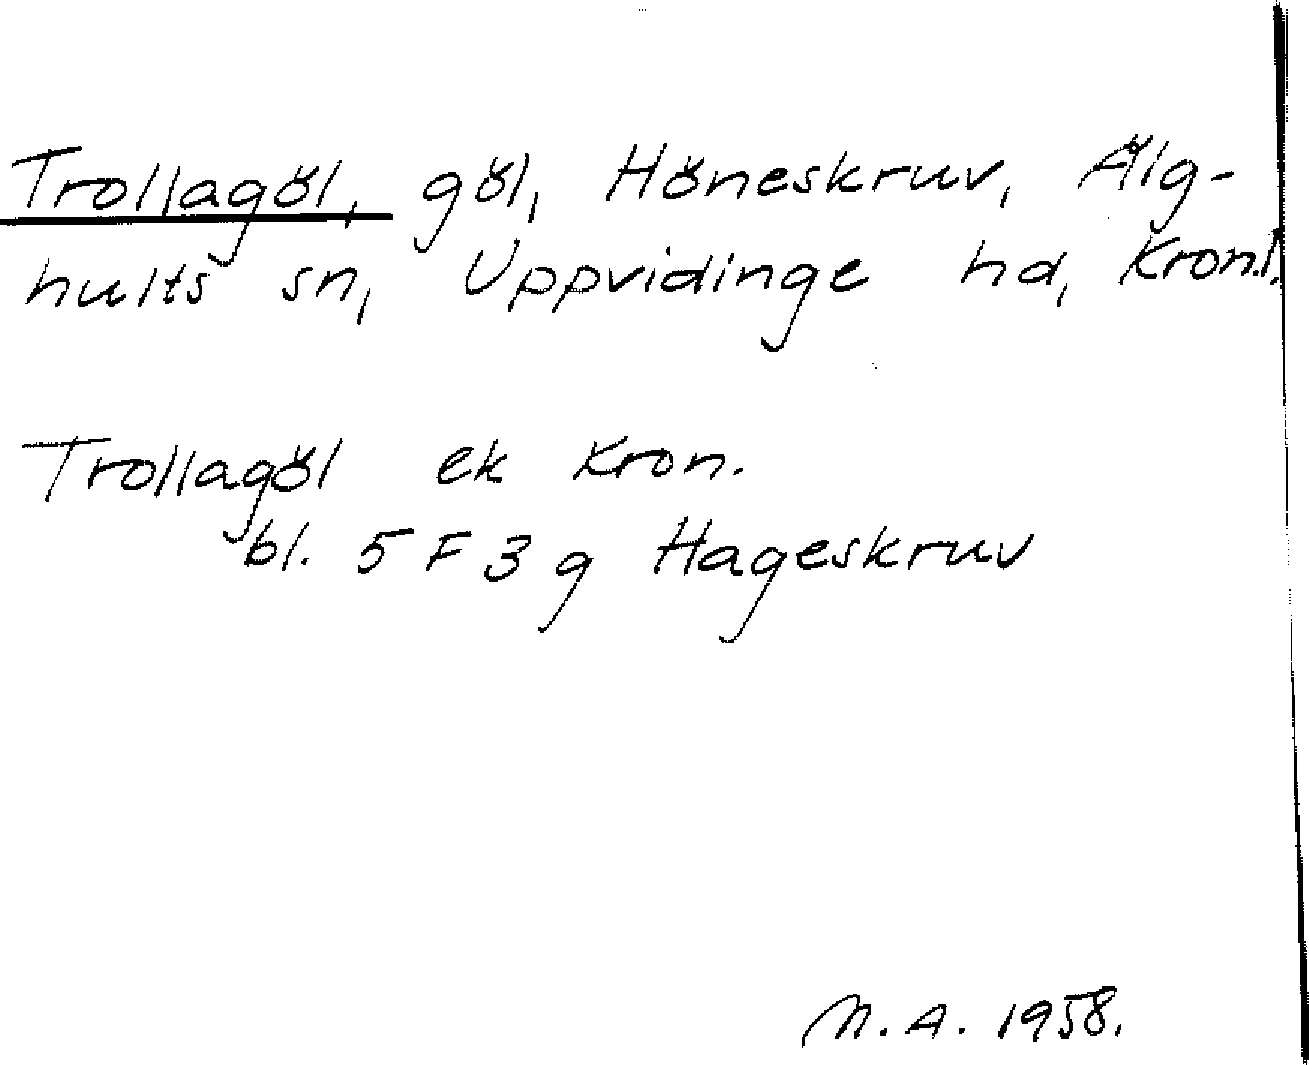 Trollagöl, göl, Höneskruv, Älg-
hults sn, Uppvidinge hd, Kron.l.
Trollagöl ek Kron.
bl. 5 F 3 g Hageskruv
N. A. 1958.